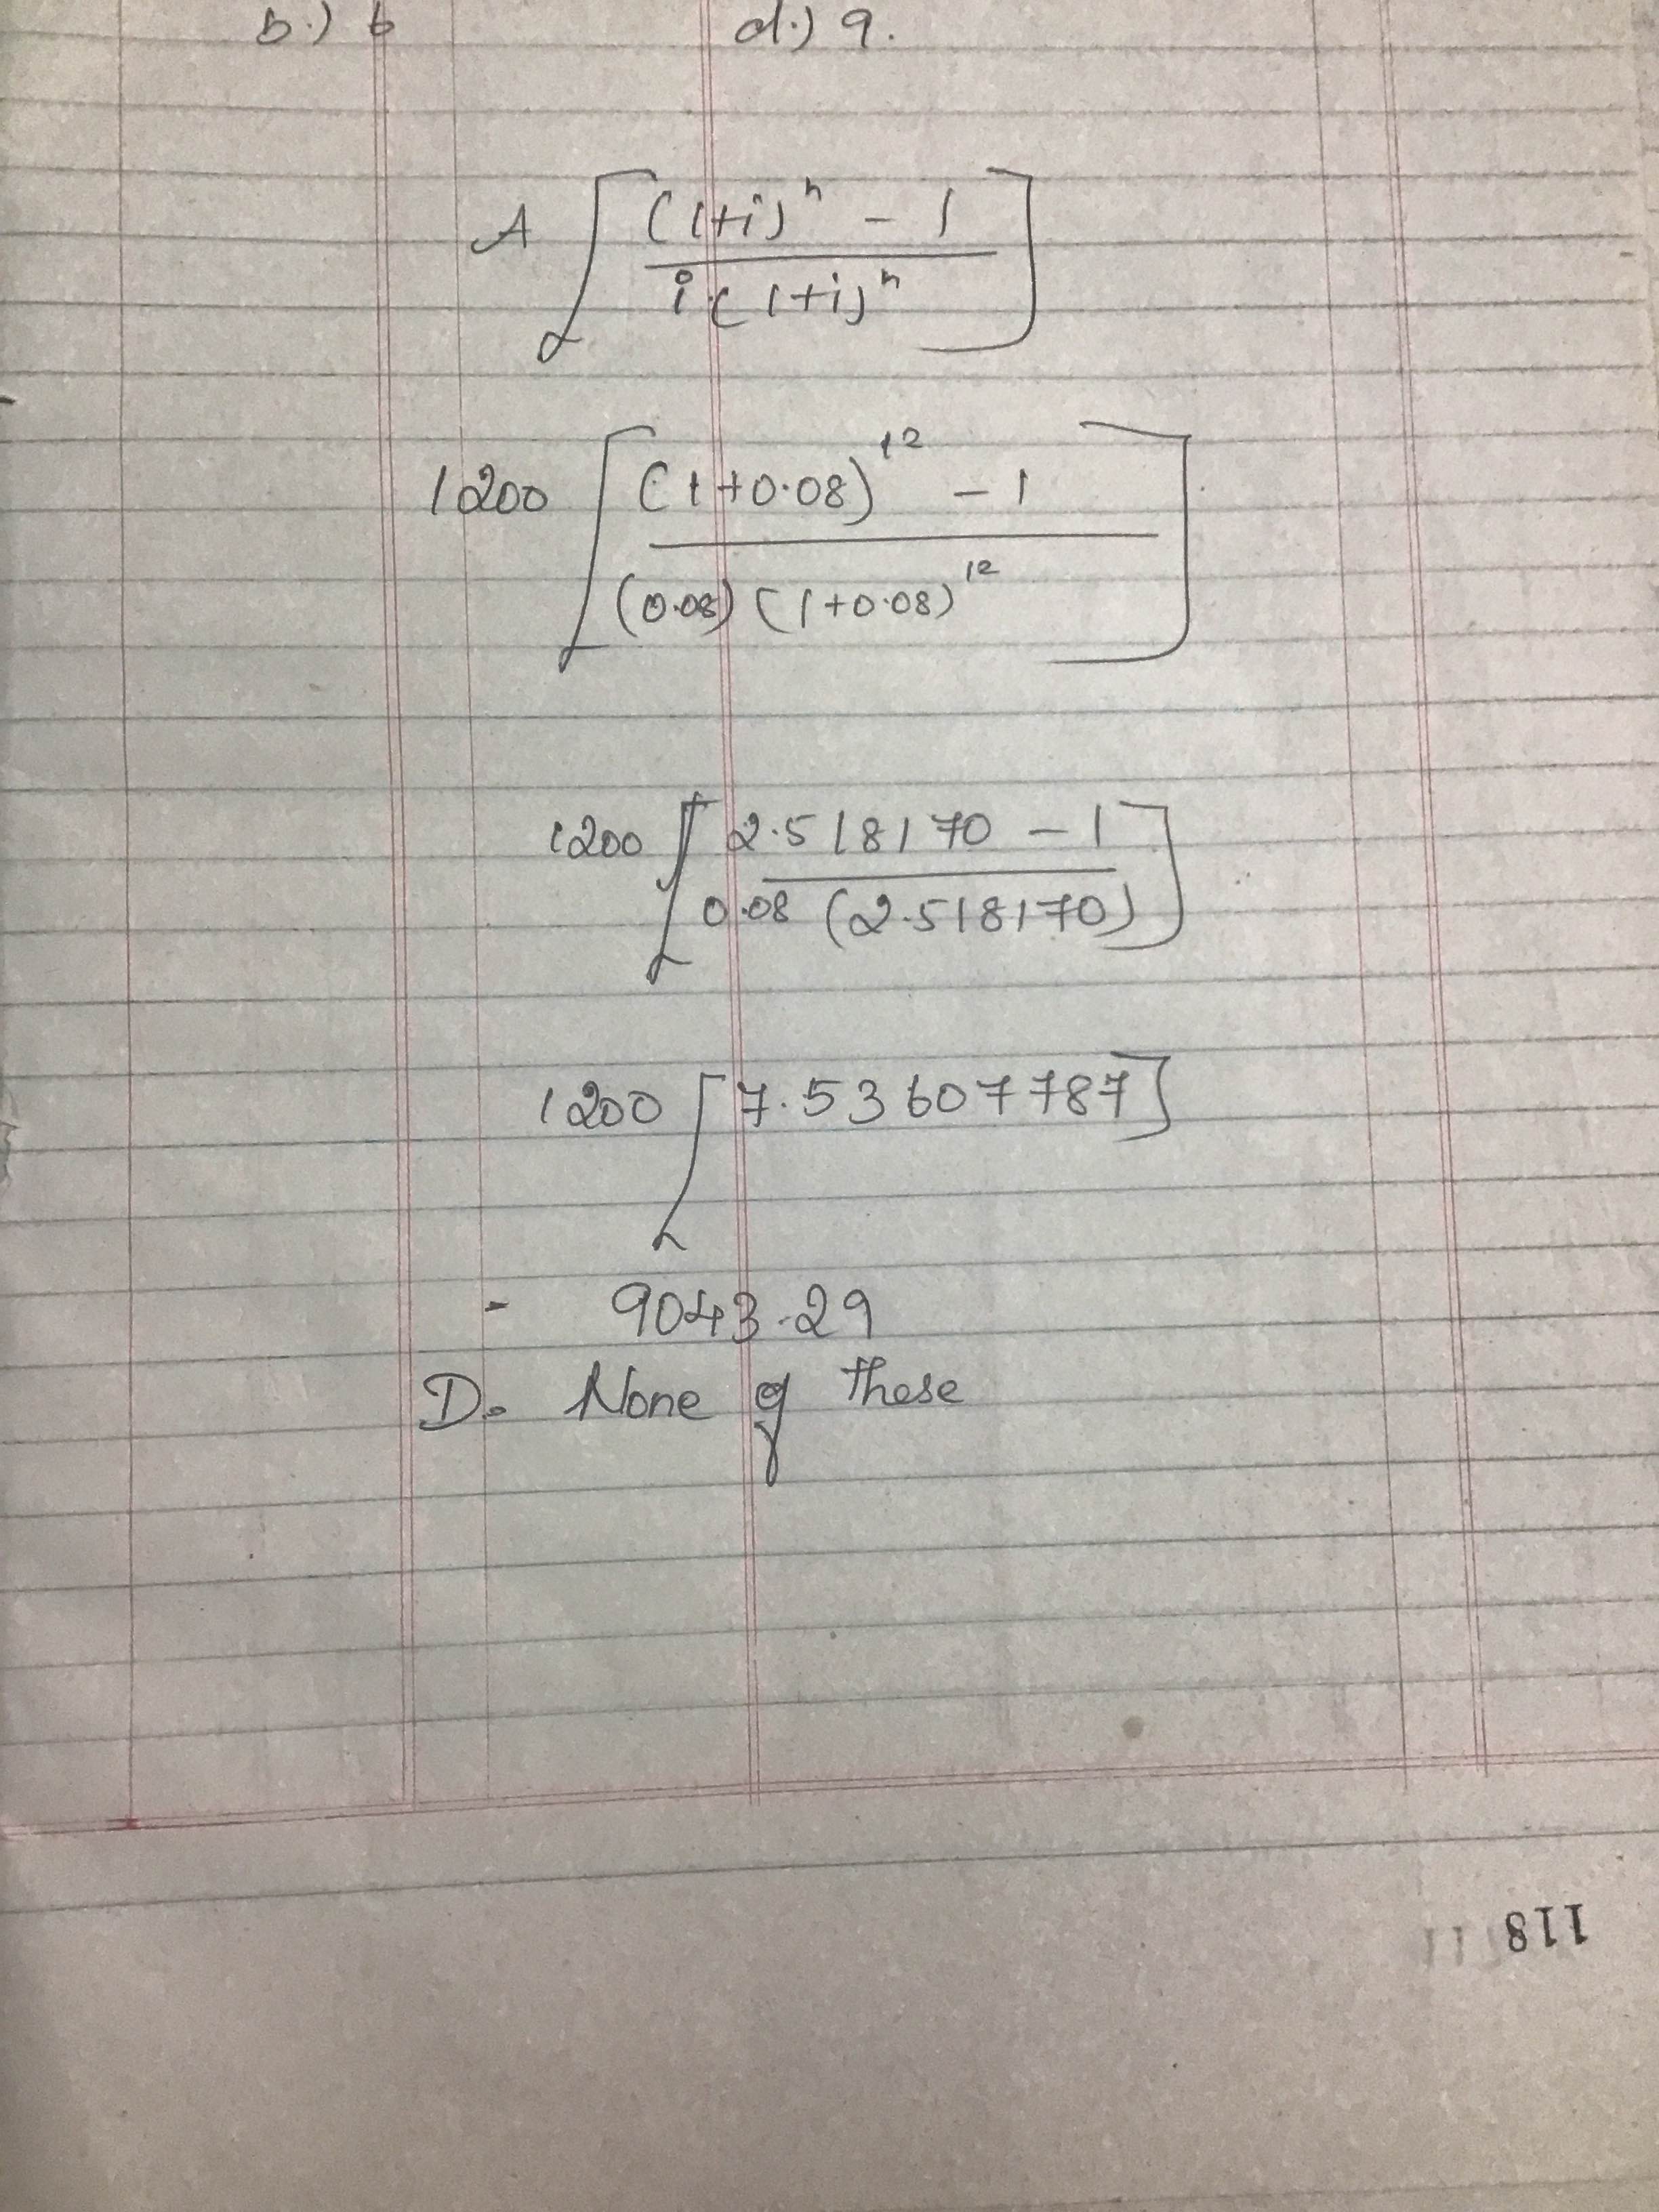 b.) 6 d.) 9.
A [ (1+i)ⁿ - 1
i (1+i)ⁿ ]
1200 [ (1+0.08)¹² - 1
(0.08) (1+0.08)¹² ]
1200 [ 2.518170 - 1
0.08 (2.518170) ]
1200 [7.53607787]
- 9043.29
D. None of these
118